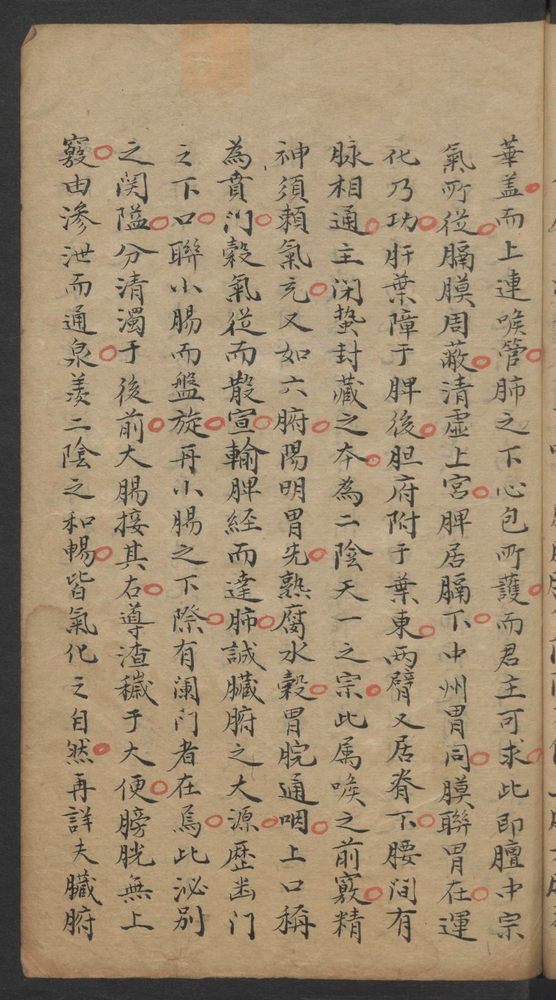 華盖而上連喉管肺之下心包所護而君主可求此即膻中宗
氣所從膈膜周蔽清虛上宮脾居膈下中州胃同膜聯胃在運
化乃功肝葉障于脾後胆府附于葉東兩臂又居脊下腰间有
脉相通主闲蛰封藏之夲為二陰天一之宗此属喉之前竅精
神須頼氣充又如六腑陽明胃先熟腐水穀胃脘通咽上口稱
為賁门穀氣從而散宣輸脾經而達肺誠臟腑之大源歷幽门
之下口聯小腸而盤旋再小腸之下際有闌门者在焉此泌别
之関隘分清濁于後前大腸接其右導渣穢于大便膀胱無上
竅由滲泄而通泉羡二陰之和暢皆氣化之自然再詳夫臟腑